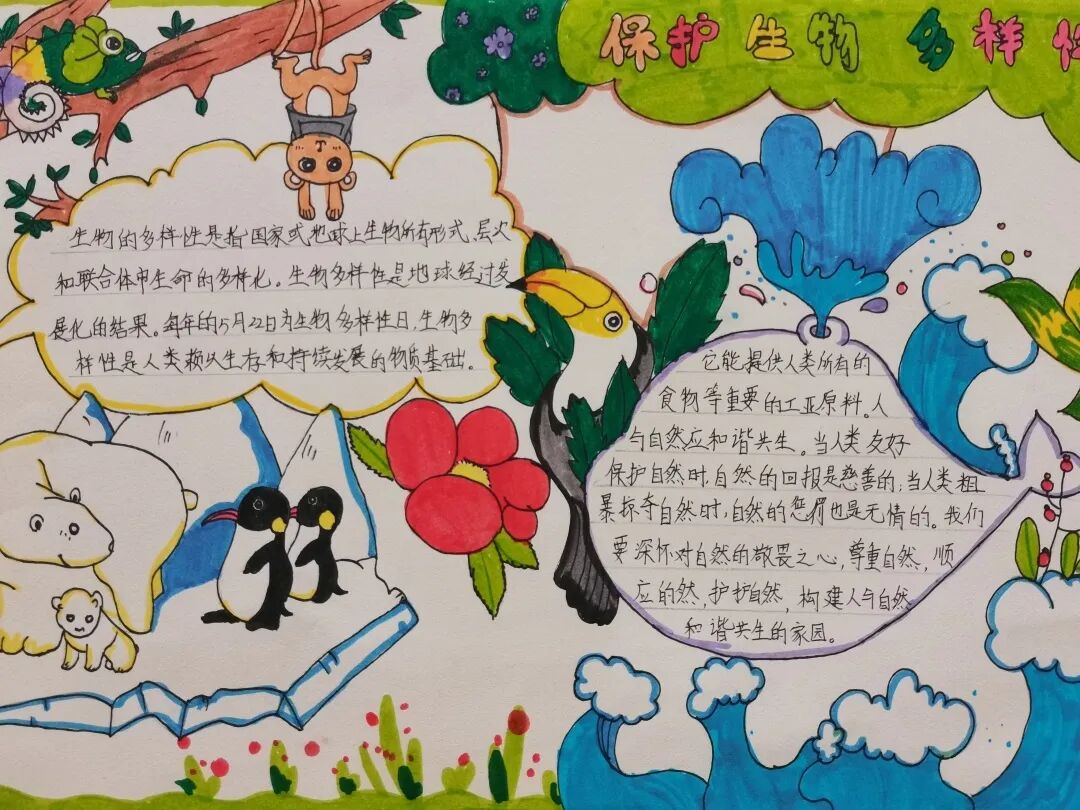 保护生物多样性
生物的多样性是指国家或地球上生物所有形式、层次
和联合体中生命的多样化。生物多样性是地球经过发
展化的结果。每年的5月22日为生物多样性日,生物多
样性是人类赖以生存和持续发展的物质基础。
它能提供人类所有的
食物等重要的工业原料。人
与自然应和谐共生。当人类友好
保护自然时,自然的回报是慈善的;当人类粗
暴掠夺自然时,自然的惩罚也是无情的。我们
要深怀对自然的敬畏之心,尊重自然,顺
应的然,护护自然,构建人与自然
和谐共生的家园。